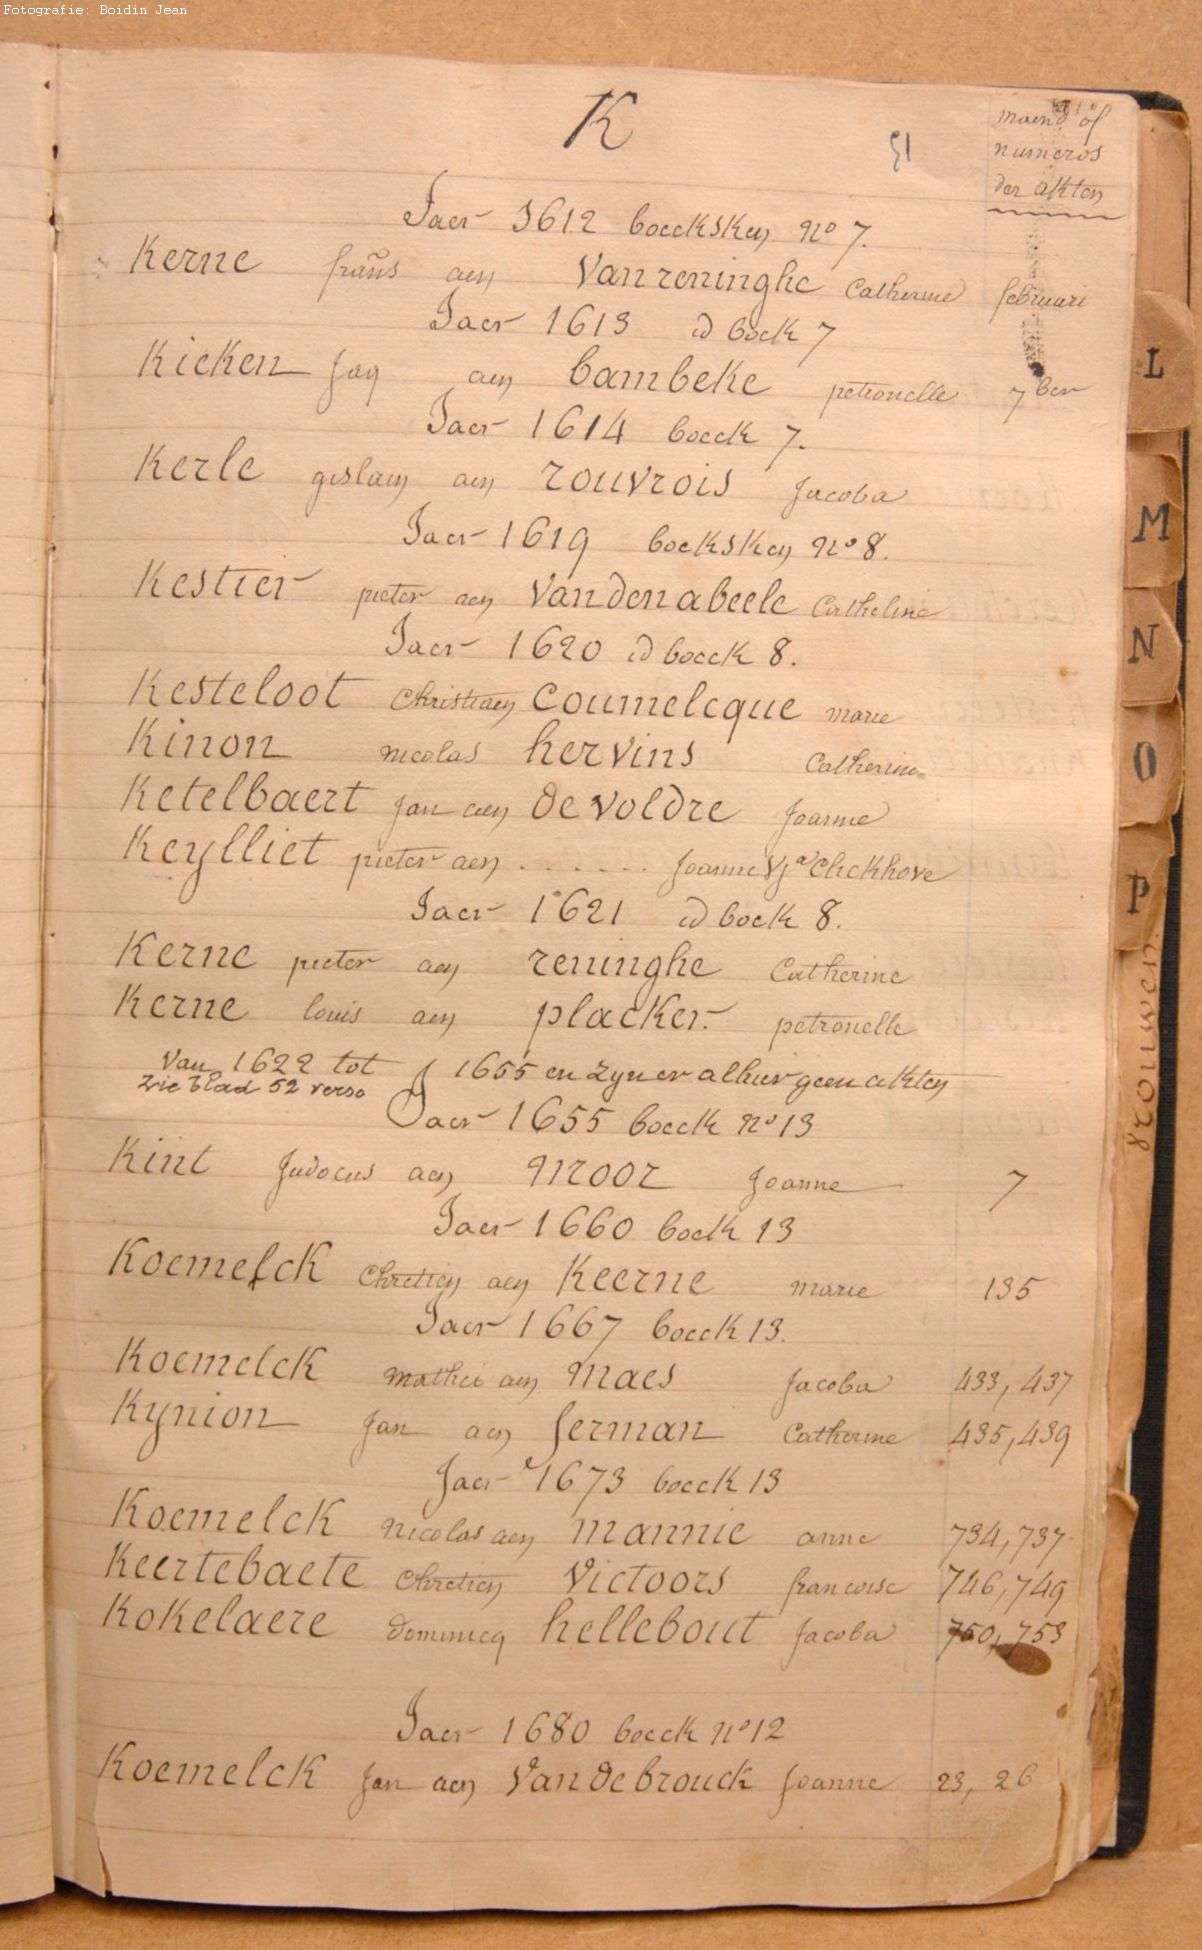 Fotografie: Boidin Jean
K
51
maend of
numeros
der akten
Jaer 1612 boeckskey no 7.
Kerne frañs aey Vanreninghe Catherine februari
Jaer 1613 id boek 7
Kieken Jaq aey bambeke petronelle 7ber
Jaer 1614 boeck 7.
Kerle gislain aey rouvrois Jacoba
Jaer 1619 boekskey no 8.
Kestier pieter aey Vandenabeele Catheline
Jaer 1620 id boeck 8.
Kesteloot Christiaey Coumelcque marie
Kinon nicolas hervins Catherine
Ketelbaert Jan aey de voldre Joanne
Keylliet pieter aey ...... Joanne Elickhove
Jaer 1621 id boek 8.
Kerne pieter aey reninghe Catherine
Kerne louis aey placker. petronelle
Van 1622 tot 1655 en zyn er alhier geen akten
zie blad 52 verso
Jaer 1655 boeck no 13
Kint Judocus aey Moor Joanne 7
Jaer 1660 boek 13
Koemelck Chretiey aey Keerne marie 135
Jaer 1667 boeck 13.
Koemelck mathei aey Maes Jacoba 433, 437
Kynion Jan aey Jerman Catherine 435, 439
Jaer 1673 boeck 13
Koemelck Nicolas aey mannie anne 734, 737
Keertebaete Chretiey Victoors francoise 746, 749
Kokelaere dominicq hellebout Jacoba 750, 753
Jaer 1680 boeck no 12
Koemelck Jan aey Vandebrouck Joanne 23, 26
L
M
N
O
P
vrouwen